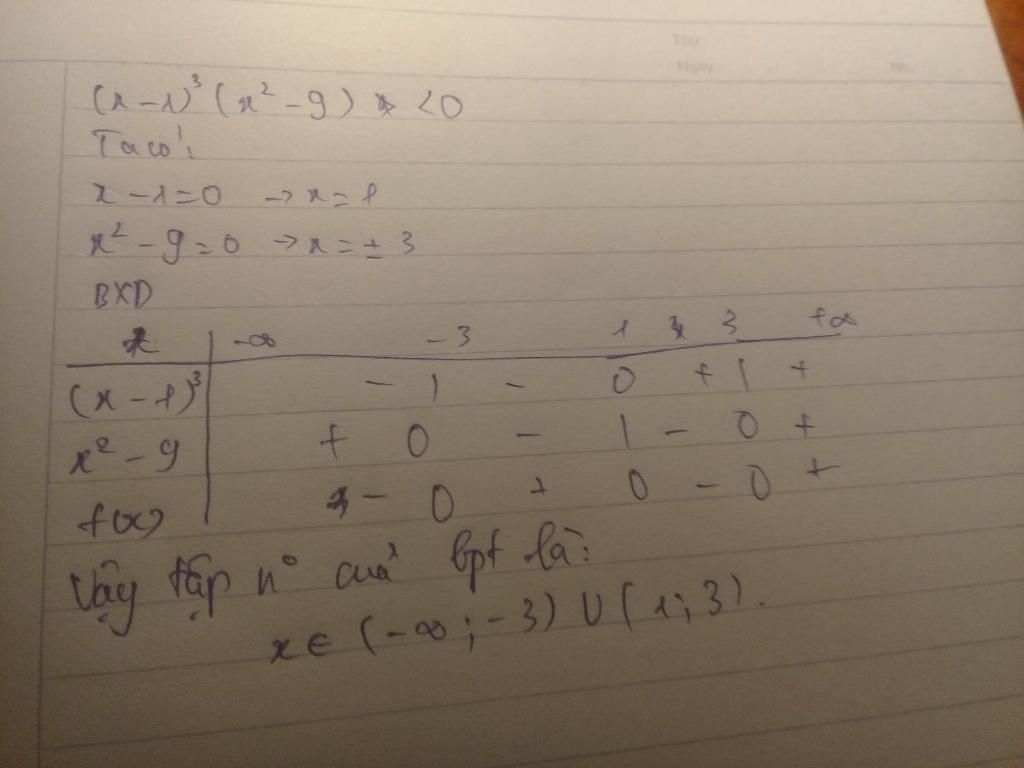 Thứ
Ngày No.
(x - 1)³ (x² - 9) < 0
Ta có:
x - 1 = 0 → x = 1
x² - 9 = 0 → x = ± 3
BXD
x | -∞ -3 1 3 +∞
(x - 1)³ | - | - 0 + | +
x² - 9 | + 0 - | - 0 +
f(x) | - 0 + 0 - 0 +
Vậy tập n° của bpt là:
x ∈ (-∞; -3) ∪ (1; 3).